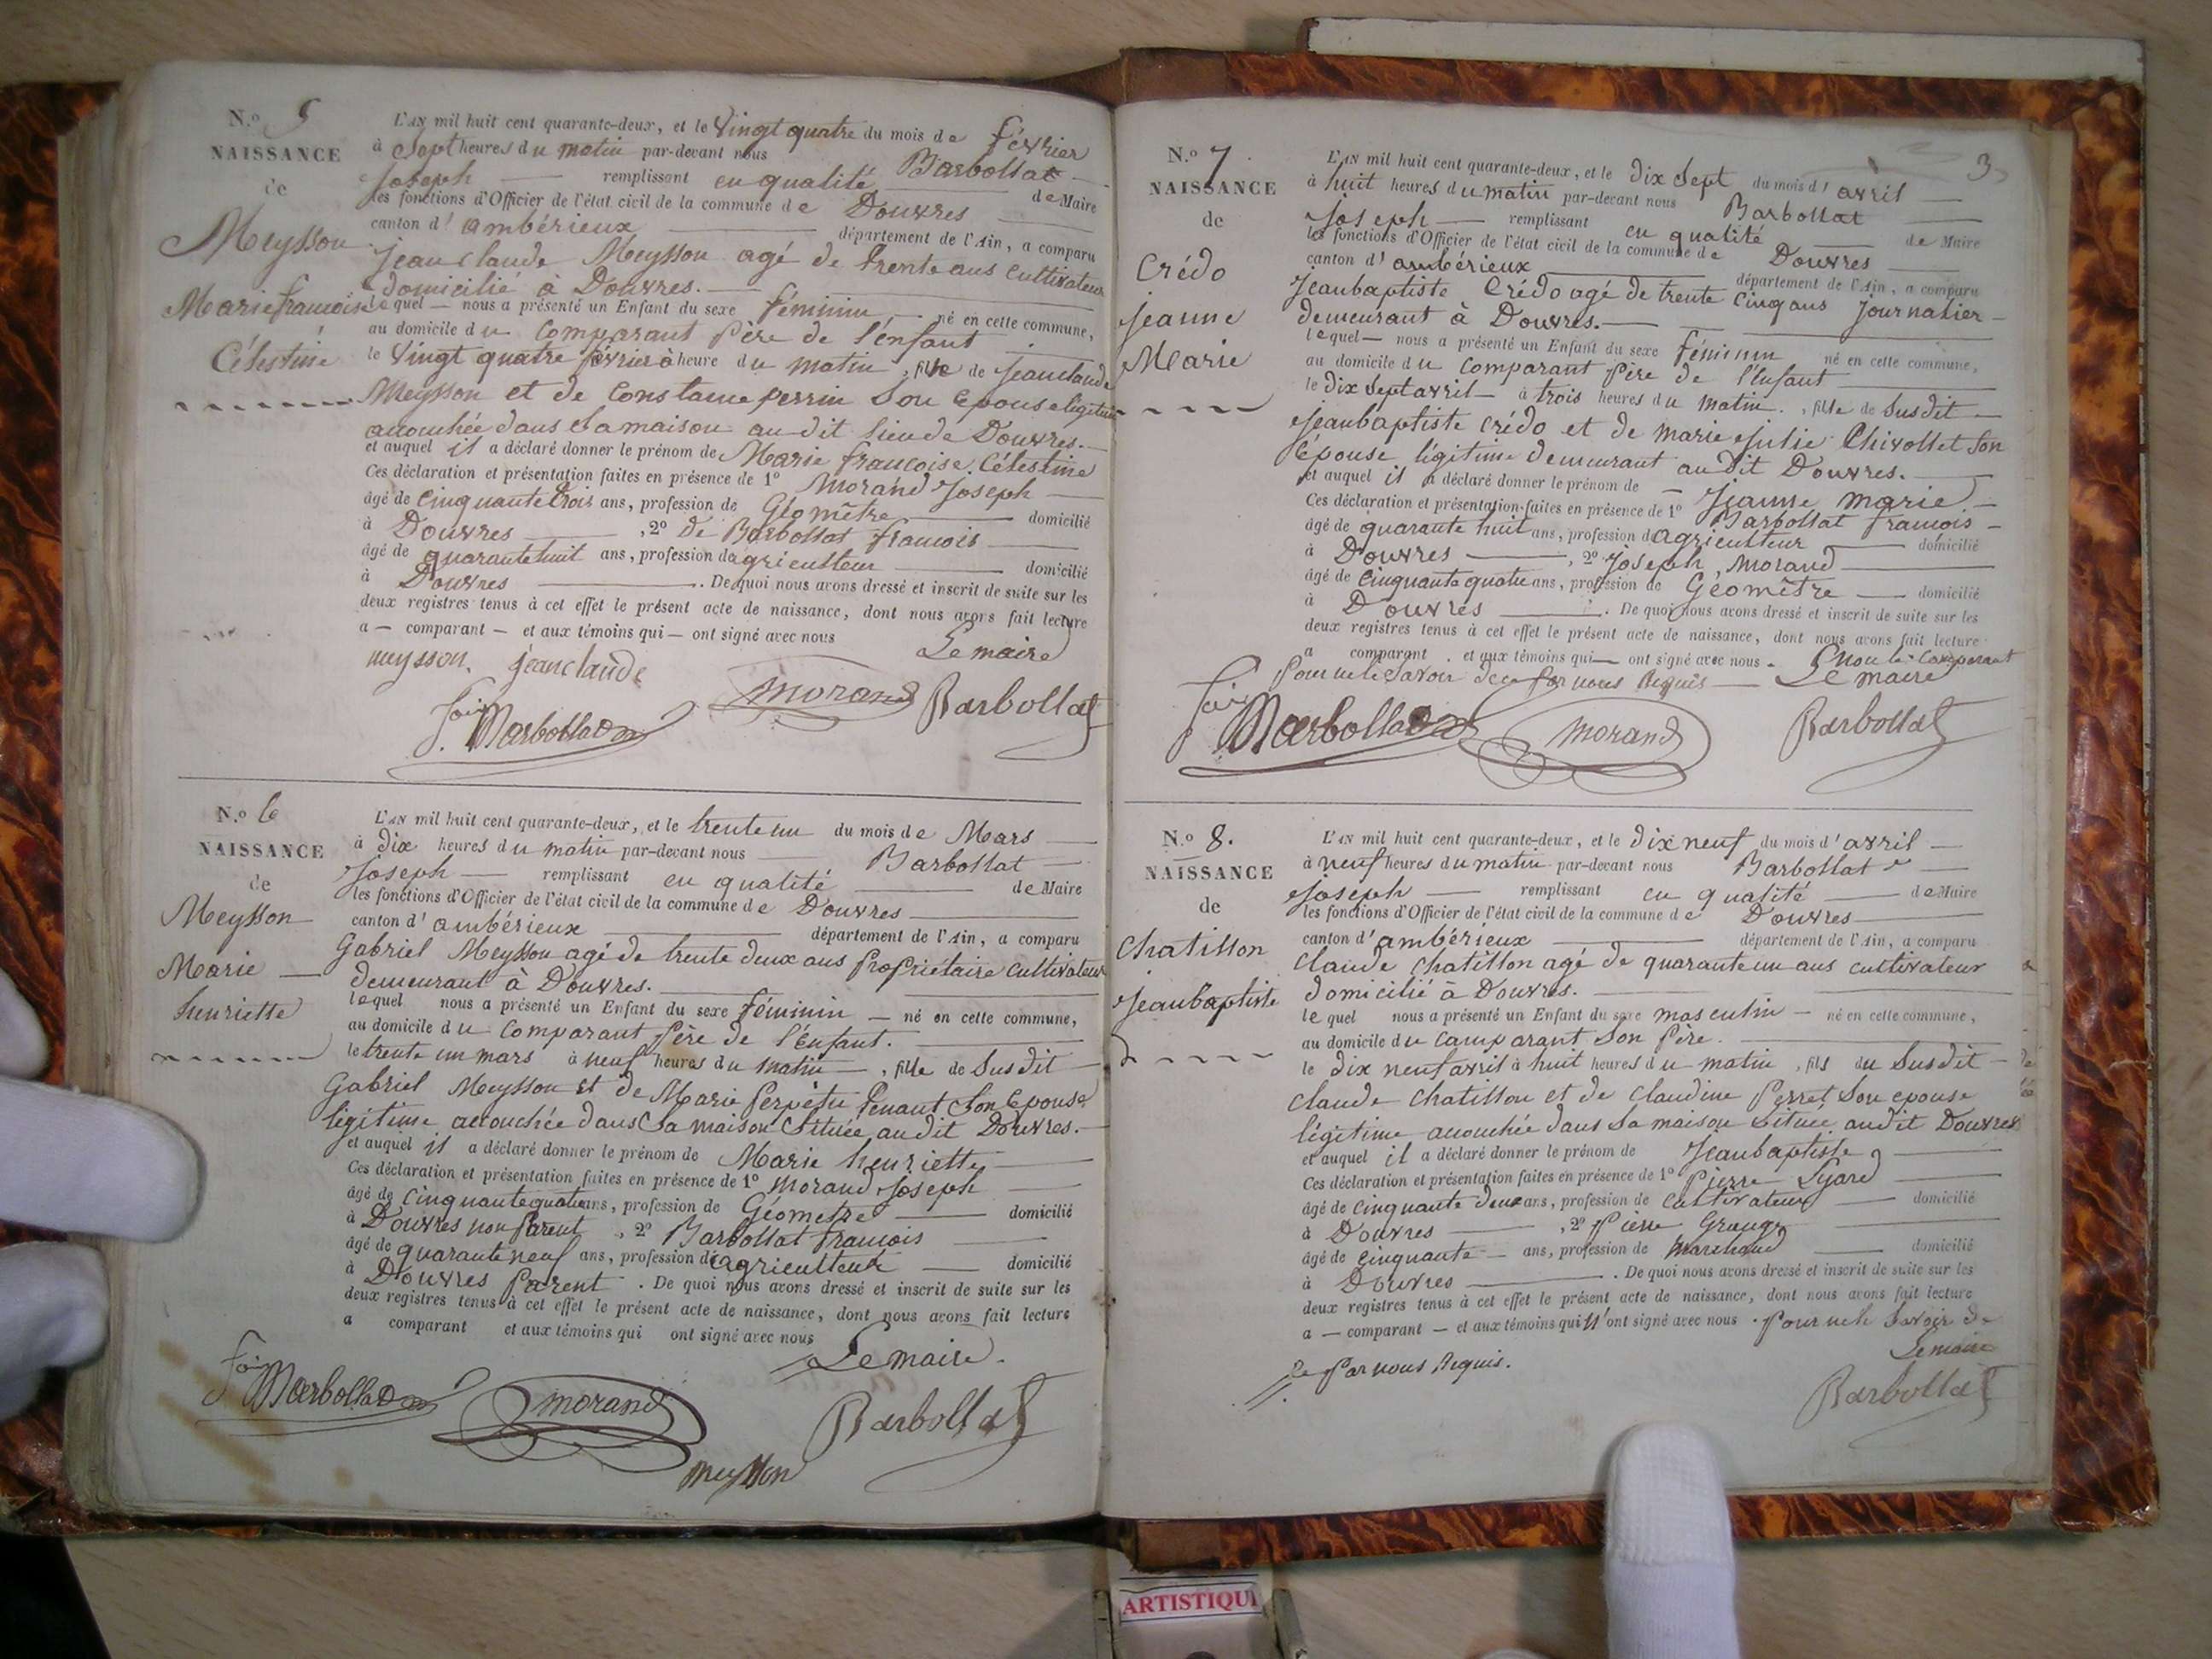 N.o 5
NAISSANCE
de
Meysson
Marie francoise
Célestine
L'AN mil huit cent quarante-deux, et le Vingt quatre du mois de février
à Sept heures du matin par-devant nous Barbollat
Joseph remplissant en qualité de Maire
les fonctions d'Officier de l'état civil de la commune de Douvres
canton d'ambérieux département de l'Ain, a comparu
Jean claude Meysson agé de trente ans cultivateur
domicilié à Douvres.
lequel nous a présenté un Enfant du sexe féminin né en cette commune,
au domicile du Comparant Père de l'enfant
le Vingt quatre février à heure du matin, fille de Jean claude
Meysson et de Constance perrin Son Epouse légitime
accouchée dans Sa maison au dit lieu de Douvres.
et auquel il a déclaré donner le prénom de Marie francoise Célestine
Ces déclaration et présentation faites en présence de 1o Morand Joseph
âgé de Cinquante trois ans, profession de Géomètre domicilié
à Douvres, 2o de Barbollat francois
âgé de quarante huit ans, profession de agriculteur domicilié
à Douvres. De quoi nous avons dressé et inscrit de suite sur les
deux registres tenus à cet effet le présent acte de naissance, dont nous avons fait lecture
a comparant et aux témoins qui ont signé avec nous
Le maire
meysson. jean claude
morand Barbollat
f. Barbollat
N.o 6
NAISSANCE
de
Meysson
Marie
henriette
L'AN mil huit cent quarante-deux, et le trente un du mois de Mars
à Dix heures du matin par-devant nous Barbollat
Joseph remplissant en qualité de Maire
les fonctions d'Officier de l'état civil de la commune de Douvres
canton d'ambérieux département de l'Ain, a comparu
Gabriel Meysson agé de trente deux ans Propriétaire Cultivateur
demeurant à Douvres.
lequel nous a présenté un Enfant du sexe féminin né en cette commune,
au domicile du Comparant Père de l'Enfant.
le trente un mars à neuf heures du matin, fille de Susdit
Gabriel Meysson et de Marie Perpétu tenant Son Epouse
légitime accouchée dans Sa maison Située au dit Douvres.
et auquel il a déclaré donner le prénom de Marie henriette
Ces déclaration et présentation faites en présence de 1o Morand Joseph
âgé de Cinquante quatre ans, profession de Géometre domicilié
à Douvres non Parent, 2o Barbollat francois
âgé de quarante neuf ans, profession de agriculteur domicilié
à Douvres Parent. De quoi nous avons dressé et inscrit de suite sur les
deux registres tenus à cet effet le présent acte de naissance, dont nous avons fait lecture
a comparant et aux témoins qui ont signé avec nous
Le maire.
Barbollat morand Barbollat
meysson
3
N.o 7
NAISSANCE
de
Crédo
Jeanne
Marie
L'AN mil huit cent quarante-deux, et le dix Sept du mois d'avril
à huit heures du matin par-devant nous Barbollat
Joseph remplissant en qualité de Maire
les fonctions d'Officier de l'état civil de la commune de Douvres
canton d'ambérieux département de l'Ain, a comparu
Jeanbaptiste Crédo agé de trente Cinq ans Journalier
demeurant à Douvres.
lequel nous a présenté un Enfant du sexe féminin né en cette commune,
au domicile du Comparant Père de l'Enfant
le dix Sept avril à trois heures du matin, fille de Susdit
Jeanbaptiste Crédo et de marie Julie Chivollet Son
Epouse légitime demeurant au dit Douvres.
et auquel il a déclaré donner le prénom de Jeanne marie
Ces déclaration et présentation faites en présence de 1o Barbollat francois
âgé de quarante huit ans, profession d'agriculteur domicilié
à Douvres, 2o Joseph Morand
âgé de Cinquante quatre ans, profession de Géomètre domicilié
à Douvres. De quoi nous avons dressé et inscrit de suite sur les
deux registres tenus à cet effet le présent acte de naissance, dont nous avons fait lecture
a comparant et aux témoins qui ont signé avec nous. Et non le Comparant
Pour ne le Savoir de ce Par nous Requis Le maire
Barbollat morand Barbollat
N.o 8.
NAISSANCE
de
Chatillon
Jeanbaptiste
L'AN mil huit cent quarante-deux, et le Dix neuf du mois d'avril
à neuf heures du matin par-devant nous Barbollat
Joseph remplissant en qualité de Maire
les fonctions d'Officier de l'état civil de la commune de Douvres
canton d'ambérieux département de l'Ain, a comparu
Claude Chatillon agé de quarante un ans cultivateur
domicilié à Douvres.
lequel nous a présenté un Enfant du sexe masculin né en cette commune,
au domicile du Comparant Son Père.
le Dix neuf avril à huit heures du matin, fils du Susdit
Claude Chatillon et de Claudine Perret Son epouse
légitime accouchée dans Sa maison Située audit Douvres
et auquel il a déclaré donner le prénom de Jeanbaptiste
Ces déclaration et présentation faites en présence de 1o Pierre
âgé de Cinquante deux ans, profession de Cultivateur domicilié
à Douvres, 2o Pierre Grange
âgé de Cinquante ans, profession de Marchand domicilié
à Douvres. De quoi nous avons dressé et inscrit de suite sur les
deux registres tenus à cet effet le présent acte de naissance, dont nous avons fait lecture
a comparant et aux témoins qui n'ont signé avec nous. Pour ne le Savoir de
Le maire
ce Par nous Requis.
Barbollat
ARTISTIQU